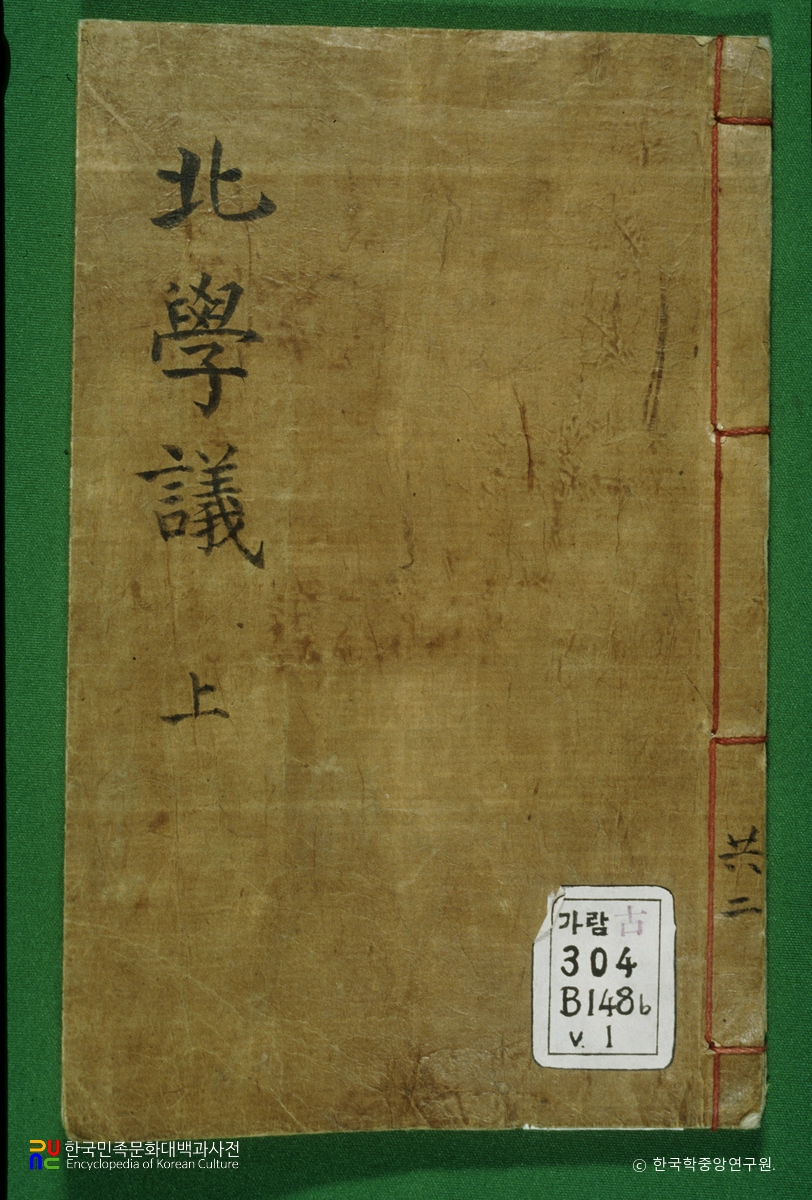 北學議 上
共二
가람 古
304
B148b
v. 1
한국민족문화대백과사전
Encyclopedia of Korean Culture
© 한국학중앙연구원.